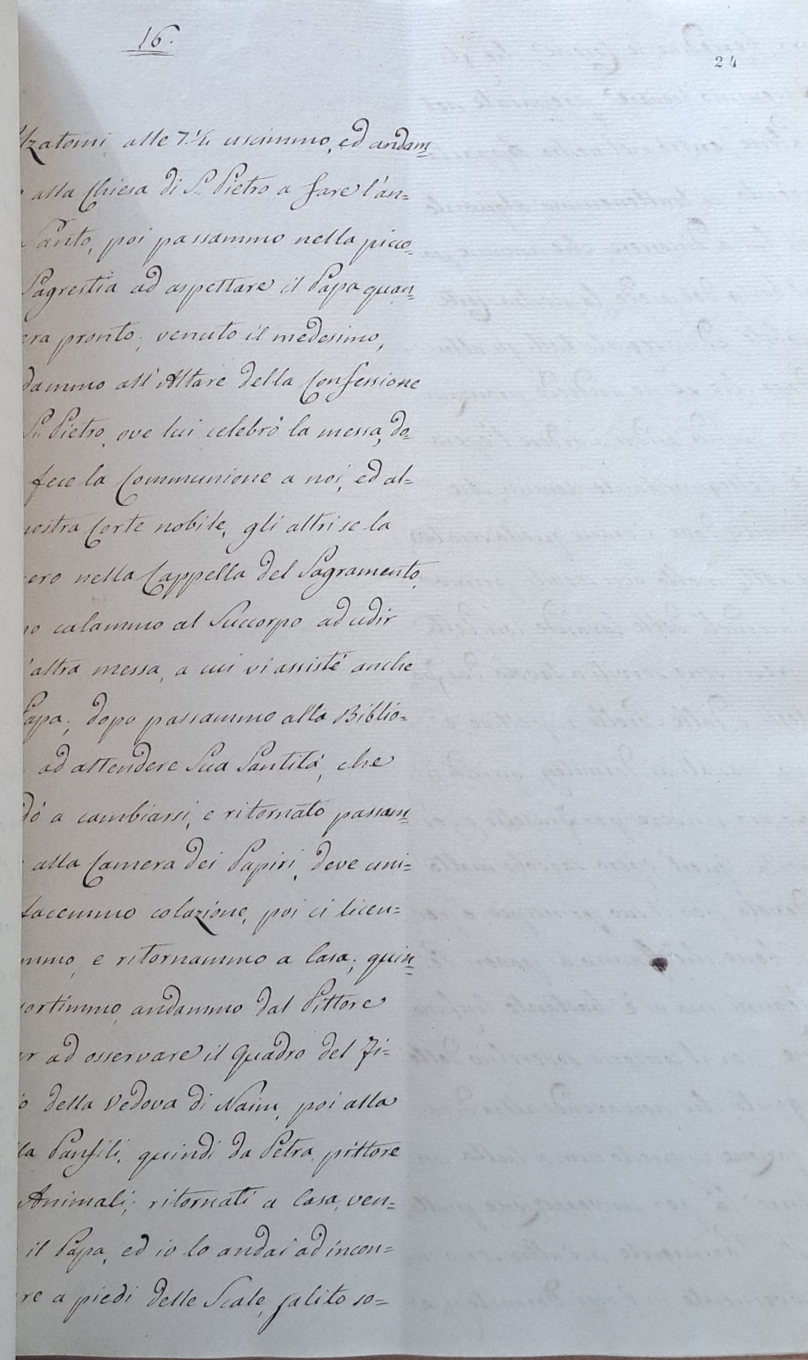 16.
24
lzatomi, alle 7½ uscimmo, ed andam=
alla Chiesa di S. Pietro a fare l'an=
Santo, poi passammo nella picco=
Sagrestia ad aspettare il Papa quan=
era pronto; venuto il medesimo,
dammo all'Altare della Confessione
S. Pietro, ove lui celebrò la messa, do=
fece la Communione a noi, ed al=
nostra Corte nobile, gli altri se la
ero nella Cappella del Sagramento,
calammo al Succorpo ad udir
altra messa, a cui vi assistè anche
Papa; dopo passammo alla Biblio=
ad attendere Sua Santità, che
dò a cambiarsi, e ritornato passam=
alla Camera dei Papiri, dove uni=
facemmo colazione, poi ci licen=
mmo, e ritornammo a Casa; quin=
ortimmo, andammo dal Pittore
r ad osservare il quadro del Fi=
o della Vedova di Naim, poi alla
la Panfili, quindi da Petra, pittore
Animali; ritornati a Casa, ven=
il Papa, ed io lo andai ad incon=
re a piedi delle Scale, salito so=